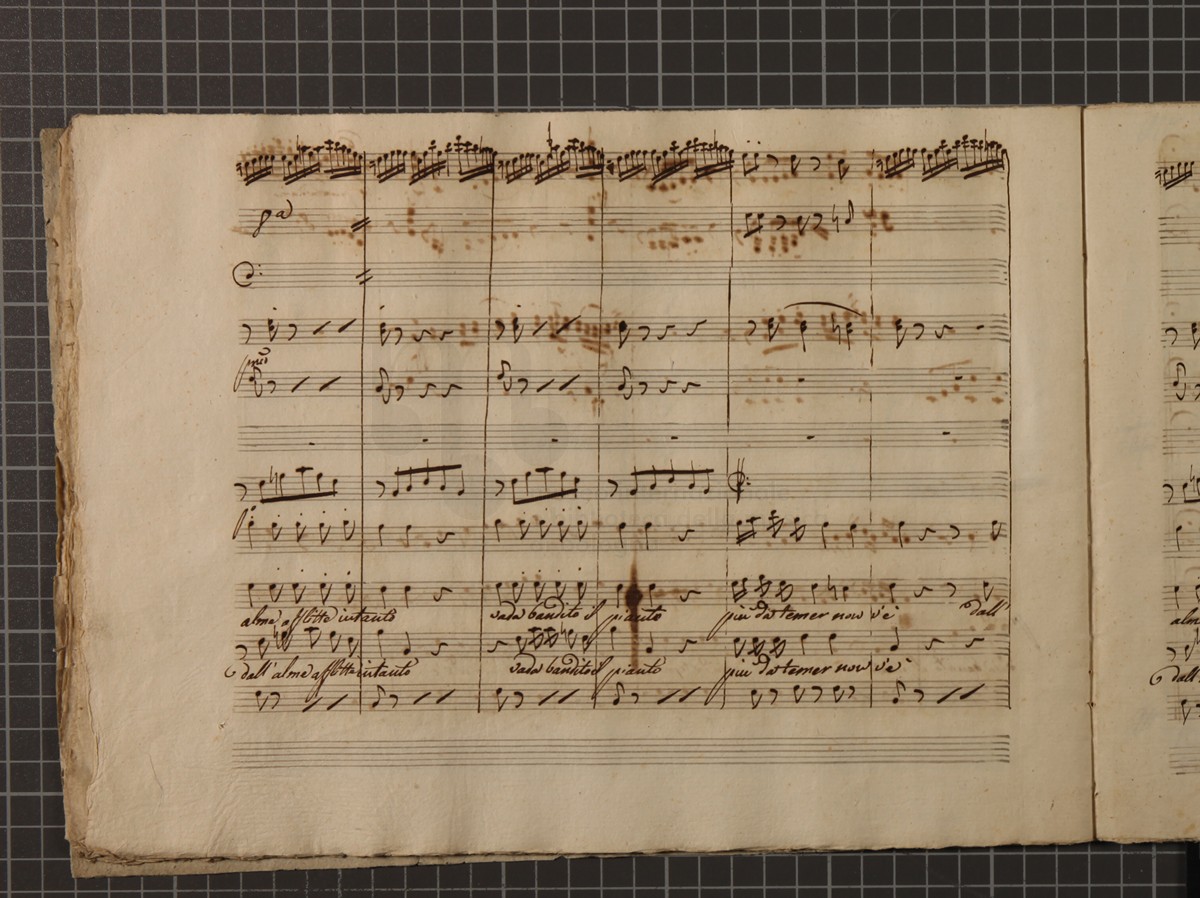 pmo
alme afflitte intanto vada bandito il pianto più da temer non v'è dall'
dall' alme afflitte intanto vada bandito il pianto più da temer non v'è